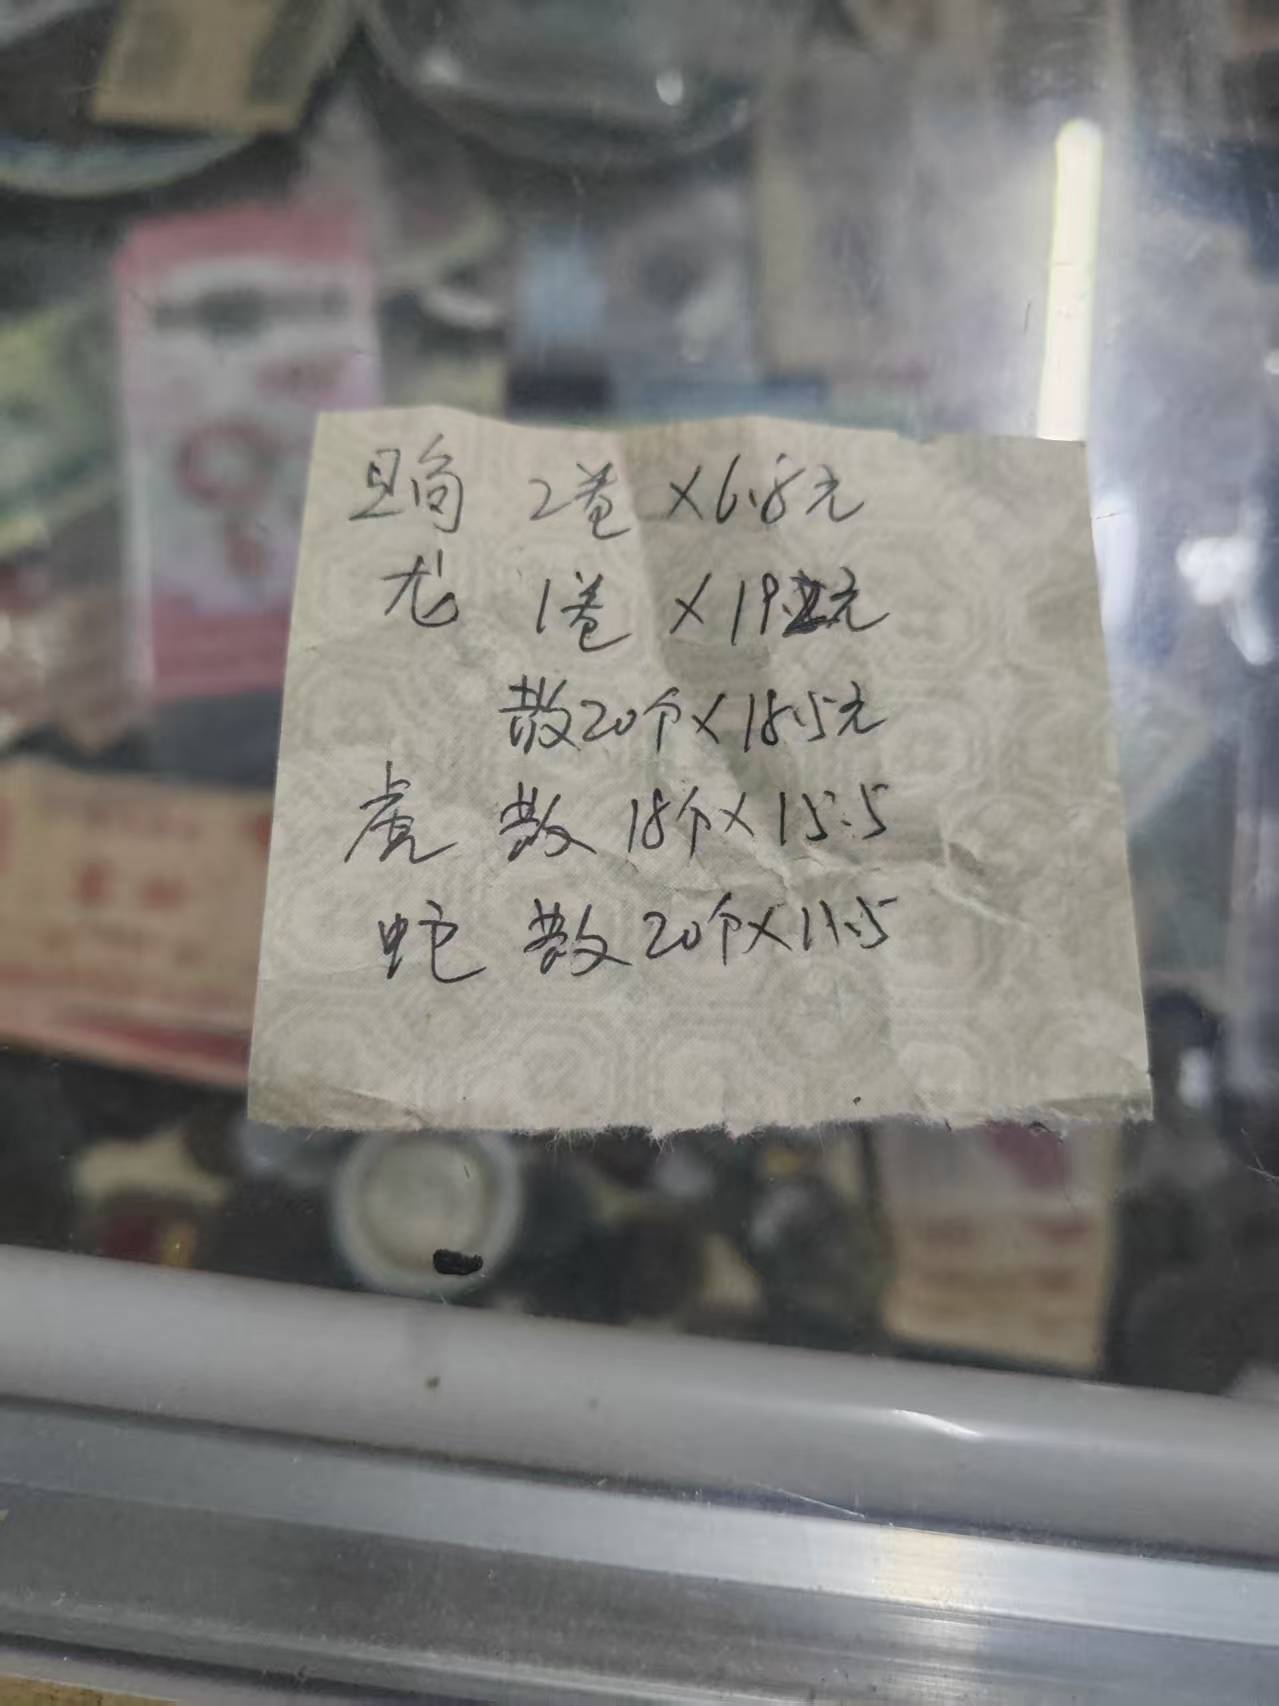 2卷 ×6.8元
龙 1卷 ×19.元
散20个×18.5元
虎 散 18个×15.5
蛇 散 20个×11.5